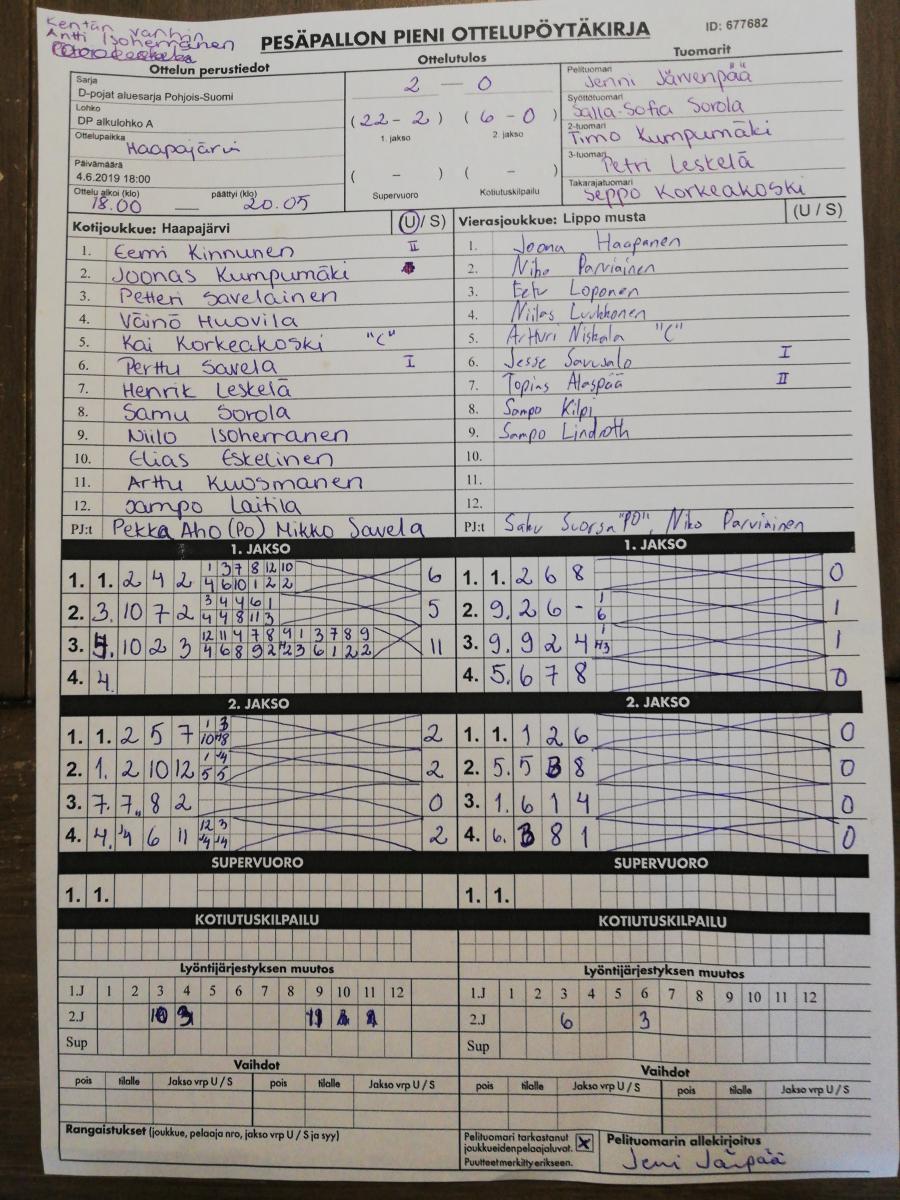 Kentän vanhin
Antti Isoherranen
PESÄPALLON PIENI OTTELUPÖYTÄKIRJA
ID: 677682
Ottelun perustiedot
Sarja
D-pojat aluesarja Pohjois-Suomi
Lohko
DP alkulohko A
Ottelupaikka
Haapajärvi
Päivämäärä
4.6.2019 18:00
Ottelu alkoi (klo) päättyi (klo)
18.00 — 20.05
Ottelutulos
2 - 0
(22 - 2) (6 - 0)
1. jakso 2. jakso
( - ) ( - )
Supervuoro Kotiutuskilpailu
Tuomarit
Pelituomari Jenni Järvenpää
Syöttötuomari Salla-Sofia Sorola
2-tuomari Timo Kumpumäki
3-tuomari Petri Leskelä
Takarajatuomari Seppo Korkeakoski
Kotijoukkue: Haapajärvi (U / S)
1. Eemi Kinnunen II
2. Joonas Kumpumäki
3. Petteri Savelainen
4. Väinö Huovila
5. Kai Korkeakoski "C"
6. Perttu Savela I
7. Henrik Leskelä
8. Samu Sorola
9. Niilo Isoherranen
10. Elias Eskelinen
11. Arttu Kuosmanen
12. Sampo Laitila
PJ:t Pekka Aho (Po) Mikko Savela
Vierasjoukkue: Lippo musta (U / S)
1. Joona Haapanen
2. Niko Parviainen
3. Eetu Loponen
4. Niilas Luukkonen
5. Artturi Niskala "C"
6. Jesse Savusalo I
7. Topias Alaspää II
8. Sampo Kilpi
9. Sampo Lindroth
10.
11.
12.
PJ:t Saku Suorsa "PO", Niko Parviainen
1. JAKSO
1. 1. 2 4 2 1 3 7 8 12 10 6
4 6 10 1 2 2
2. 3. 10 7 2 3 4 4 6 1 5
4 4 8 11 3
3. 10 2 3 12 11 4 7 8 9 1 3 7 8 9 11
4 6 8 9 2 3 6 1 2 2
4. 4.
1. JAKSO
1. 1. 2 6 8 0
2. 9. 2 6 - 1 1
6
3. 9. 9 2 4 1 1
4. 5. 6 7 8 0
2. JAKSO
1. 1. 2 5 7 1 3 2
10
2. 1. 2 10 12 1 2
5 5
3. 7. 7 8 2 0
4. 4. 6 11 12 3 2
2. JAKSO
1. 1. 1 2 6 0
2. 5. 5 8 0
3. 1. 6 1 4 0
4. 6. 8 1 0
SUPERVUORO
1. 1.
SUPERVUORO
1. 1.
KOTIUTUSKILPAILU
KOTIUTUSKILPAILU
Lyöntijärjestyksen muutos
1.J 1 2 3 4 5 6 7 8 9 10 11 12
2.J
Sup
Lyöntijärjestyksen muutos
1.J 1 2 3 4 5 6 7 8 9 10 11 12
2.J 6 3
Sup
Vaihdot
pois tilalle Jakso vrp U / S pois tilalle Jakso vrp U / S
Vaihdot
pois tilalle Jakso vrp U / S pois tilalle Jakso vrp U / S
Rangaistukset (joukkue, pelaaja nro, jakso vrp U / S ja syy)
Pelituomari tarkastanut
joukkueidenpelaajaluvat. X
Puutteetmerkittyerikseen.
Pelituomarin allekirjoitus